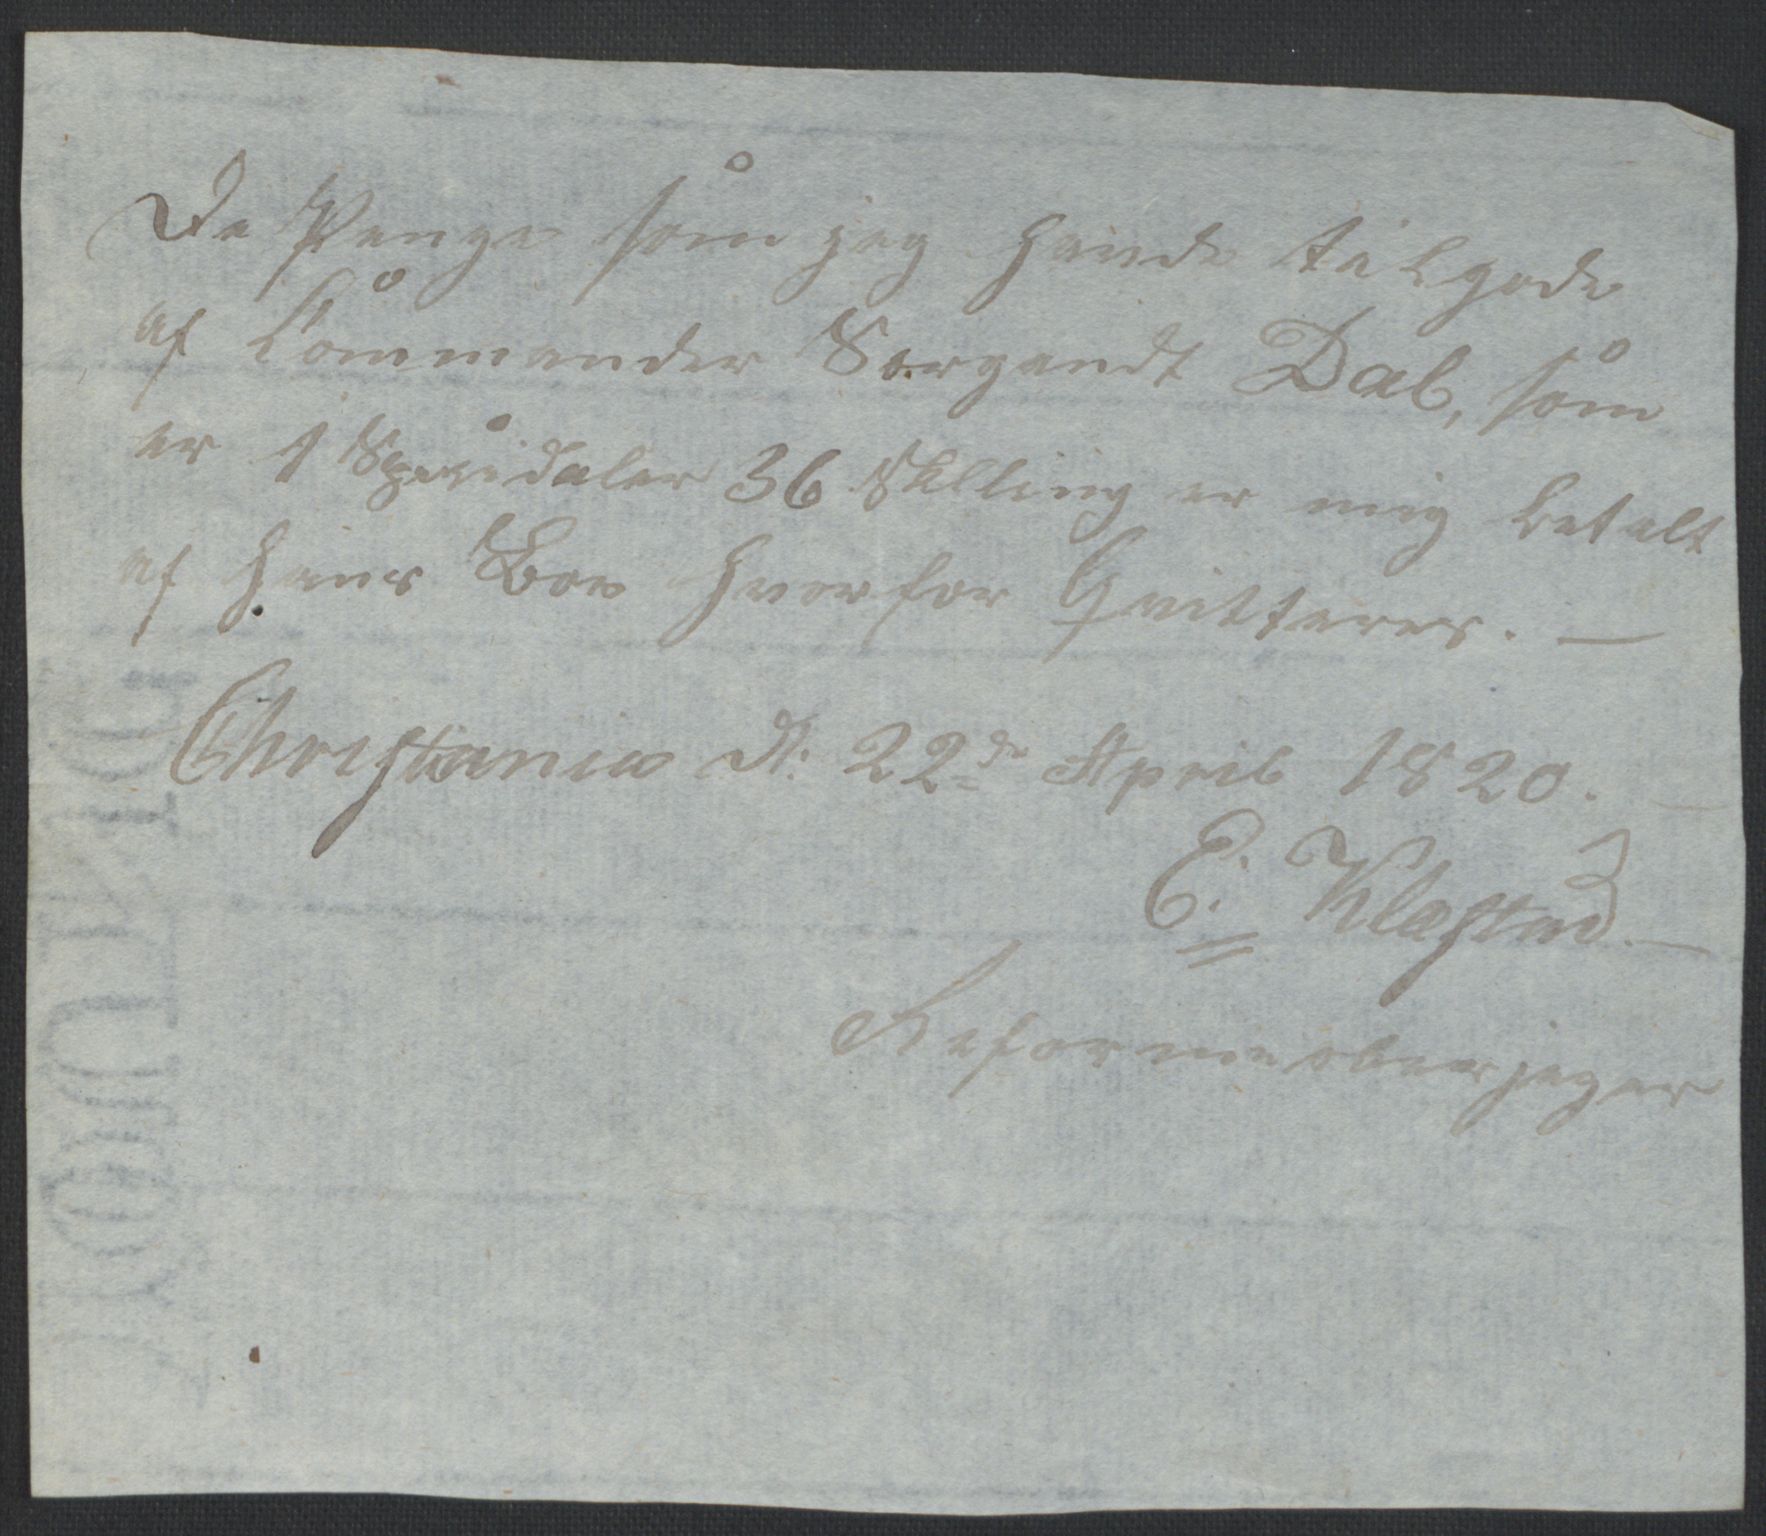 De Penge som jeg havde tilgode
af Commander Sergendt Dal, som
er 1 Specidaler 36 Skilling er mig betalt
af hans Boe hvorfor Qvitteres. —
Christiania d: 22de April 1820.
E. Klæstad. —